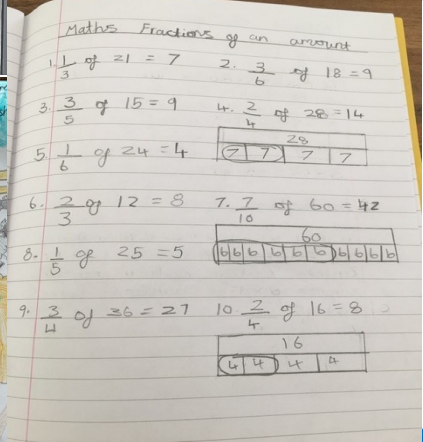 Maths Fractions of an amount
1. 1/3 of 21 = 7
2. 3/6 of 18 = 9
3. 3/5 of 15 = 9
4. 2/4 of 28 = 14
28
7 7 7 7
5. 1/6 of 24 = 4
6. 2/3 of 12 = 8
7. 7/10 of 60 = 42
60
6 6 6 6 6 6 6 6 6 6
8. 1/5 of 25 = 5
9. 3/4 of 36 = 27
10. 2/4 of 16 = 8
16
4 4 4 4